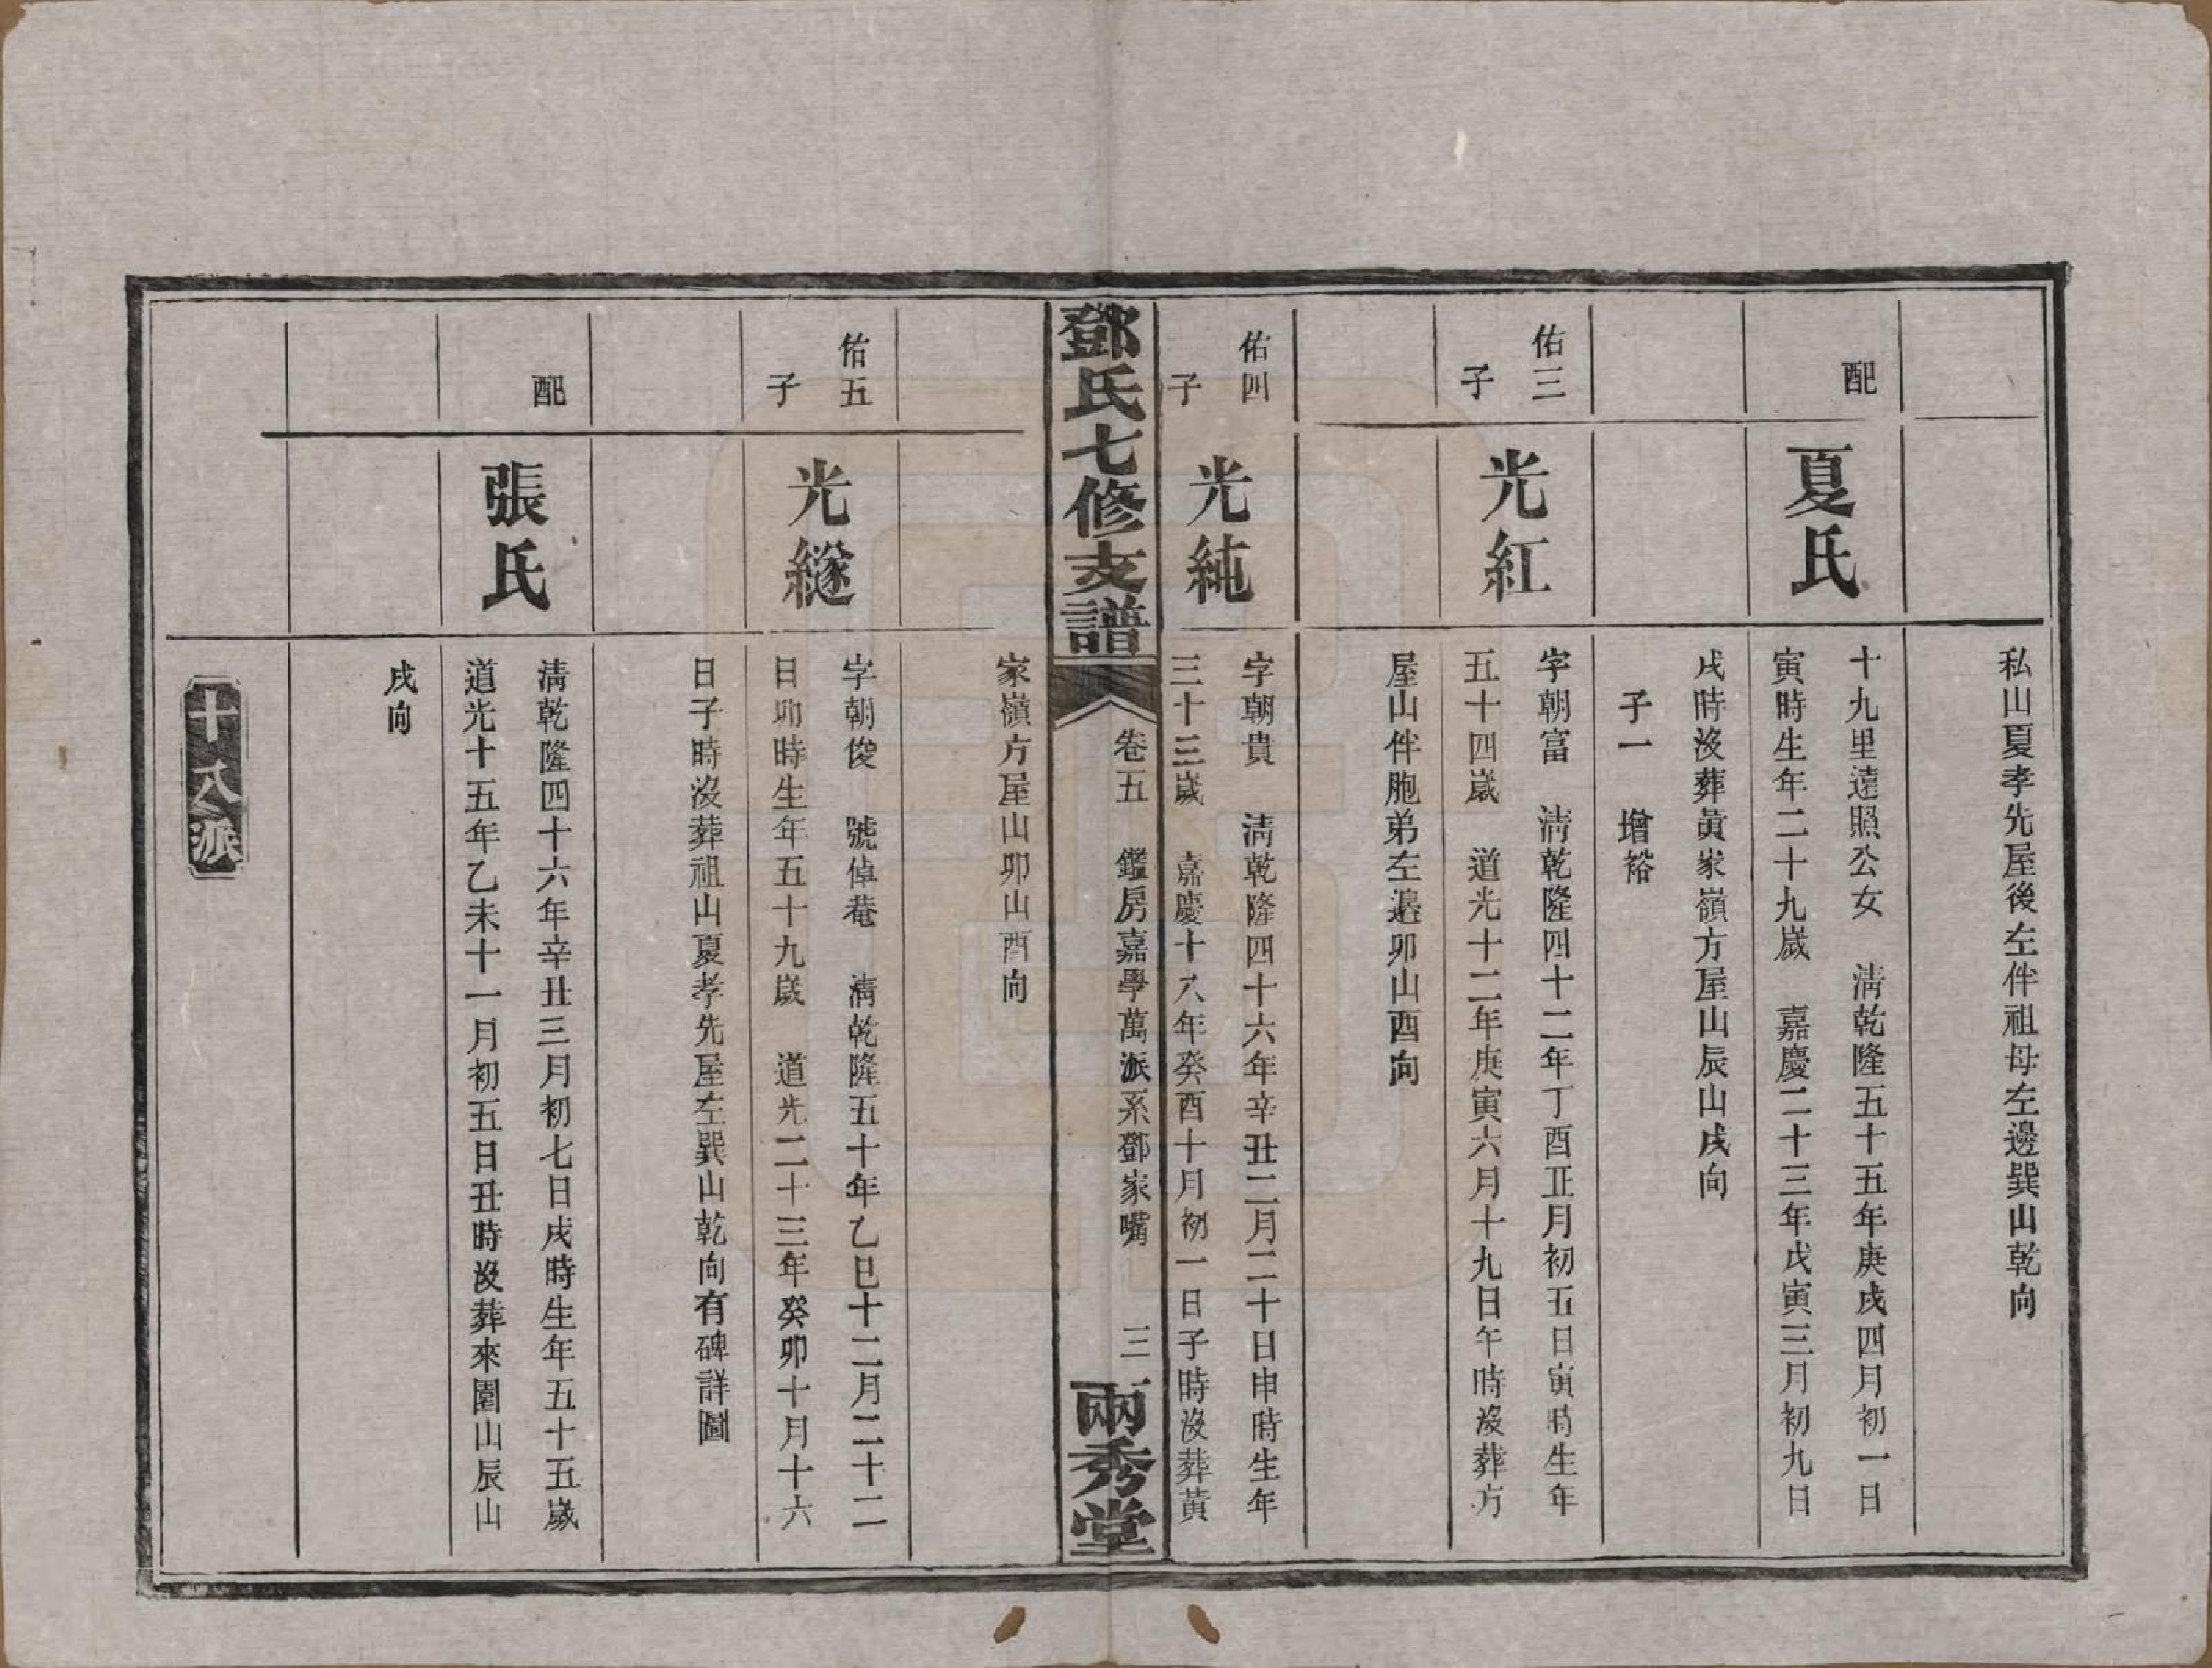 私山夏孝先屋後左伴祖母左邊巽山乾向
配
夏氏
十九里遠照公女　清乾隆五十五年庚戌四月初一日
寅時生年二十九歲　嘉慶二十三年戊寅三月初九日
戌時沒葬黃家嶺方屋山辰山戌向
子一　增裕
佑三
子
光紅
字朝富　清乾隆四十二年丁酉正月初五日寅時生年
五十四歲　道光十二年庚寅六月十九日午時沒葬方
屋山伴胞弟左邊卯山酉向
佑四
子
光純
字朝貴　清乾隆四十六年辛丑二月二十日申時生年
三十三歲　嘉慶十八年癸酉十月初一日子時沒葬黃
鄧氏七修支譜
卷五　鑑房嘉學萬派系鄧家嘴　三
兩秀堂
家嶺方屋山卯山酉向
佑五
子
光繸
字朝俊　號倬菴　清乾隆五十年乙巳十二月二十二
日卯時生年五十九歲　道光二十三年癸卯十月十六
日子時沒葬祖山夏孝先屋左巽山乾向有碑詳圖
配
張氏
清乾隆四十六年辛丑三月初七日戌時生年五十五歲
道光十五年乙未十一月初五日丑時沒葬來園山辰山
戌向
十八派